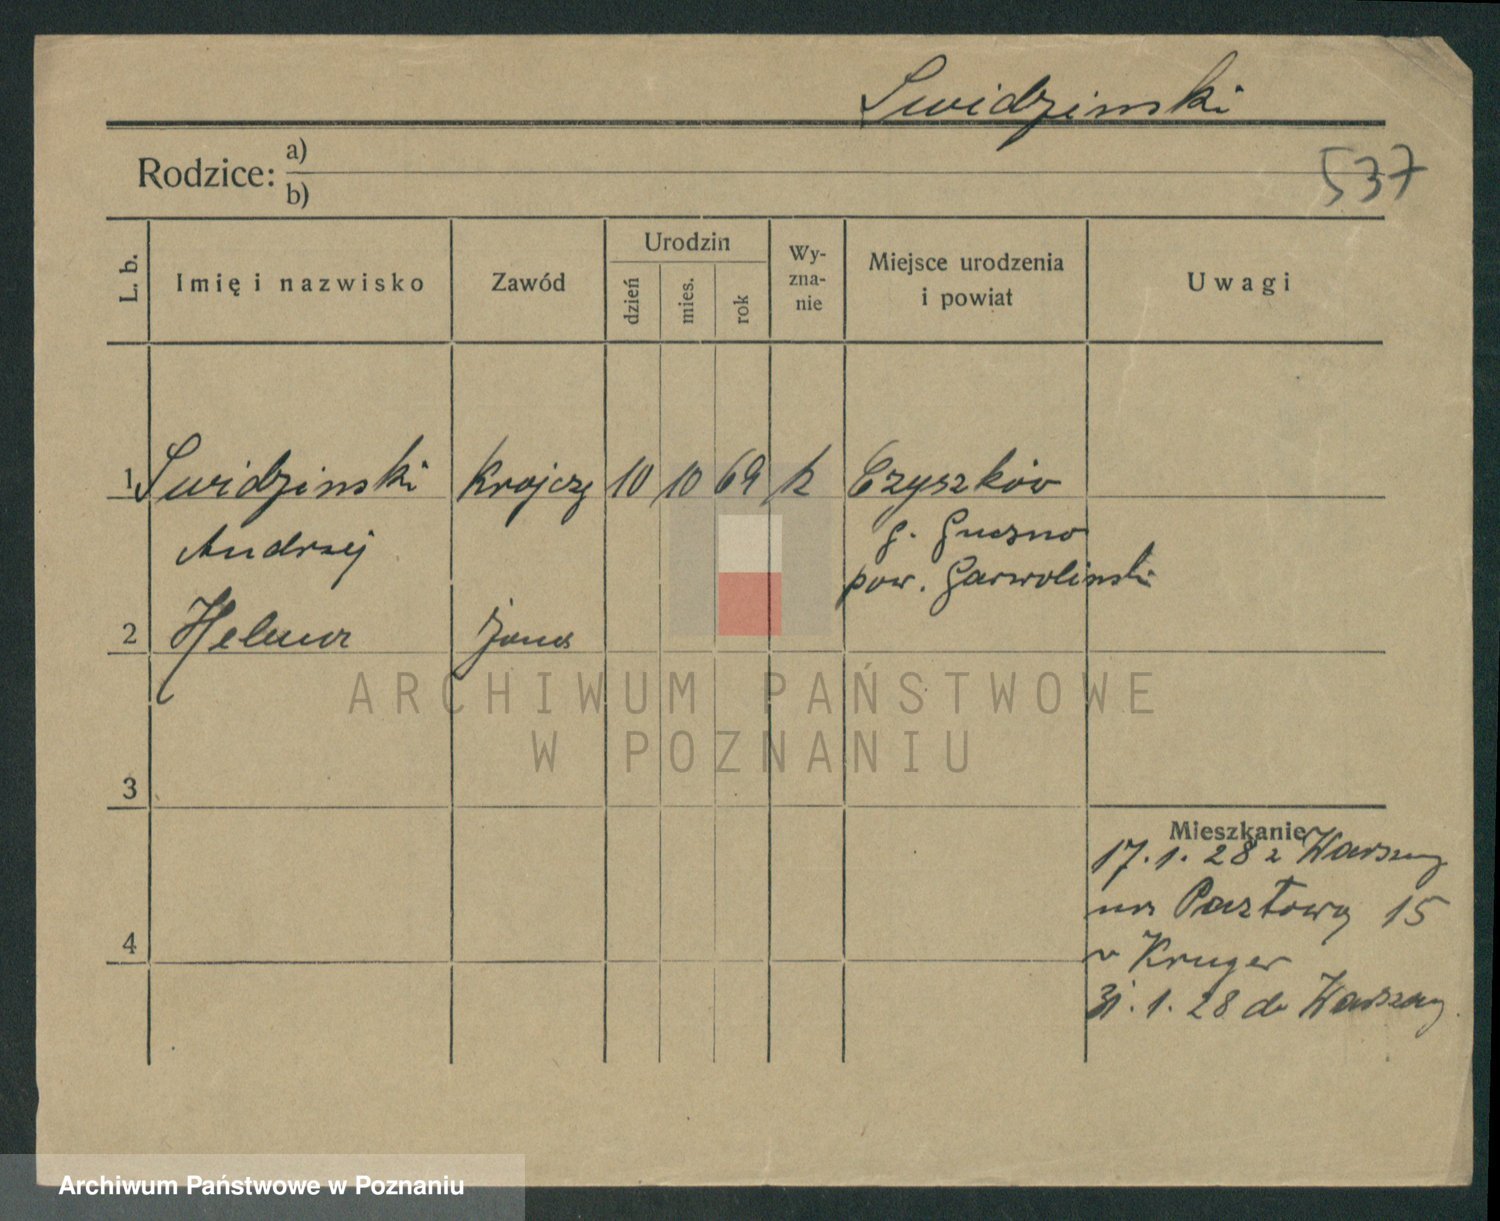 Swidzinski
537
Rodzice: a)
b)
L. b.
Imię i nazwisko
Zawód
Urodzin
dzień
mies.
rok
Wy-
zna-
nie
Miejsce urodzenia
i powiat
Uwagi
1 Swidzinski Krojczy 10 10 69 k Czyszków
Andrzej
g. Guzno
pow. Garwolinski
2 Helena żona
3
Mieszkanie
17.1.28 z Warszawy
na Pocztową 15
4
v Kruger
31.1.28 do Warszawy
ARCHIWUM PAŃSTWOWE
W POZNANIU
Archiwum Państwowe w Poznaniu